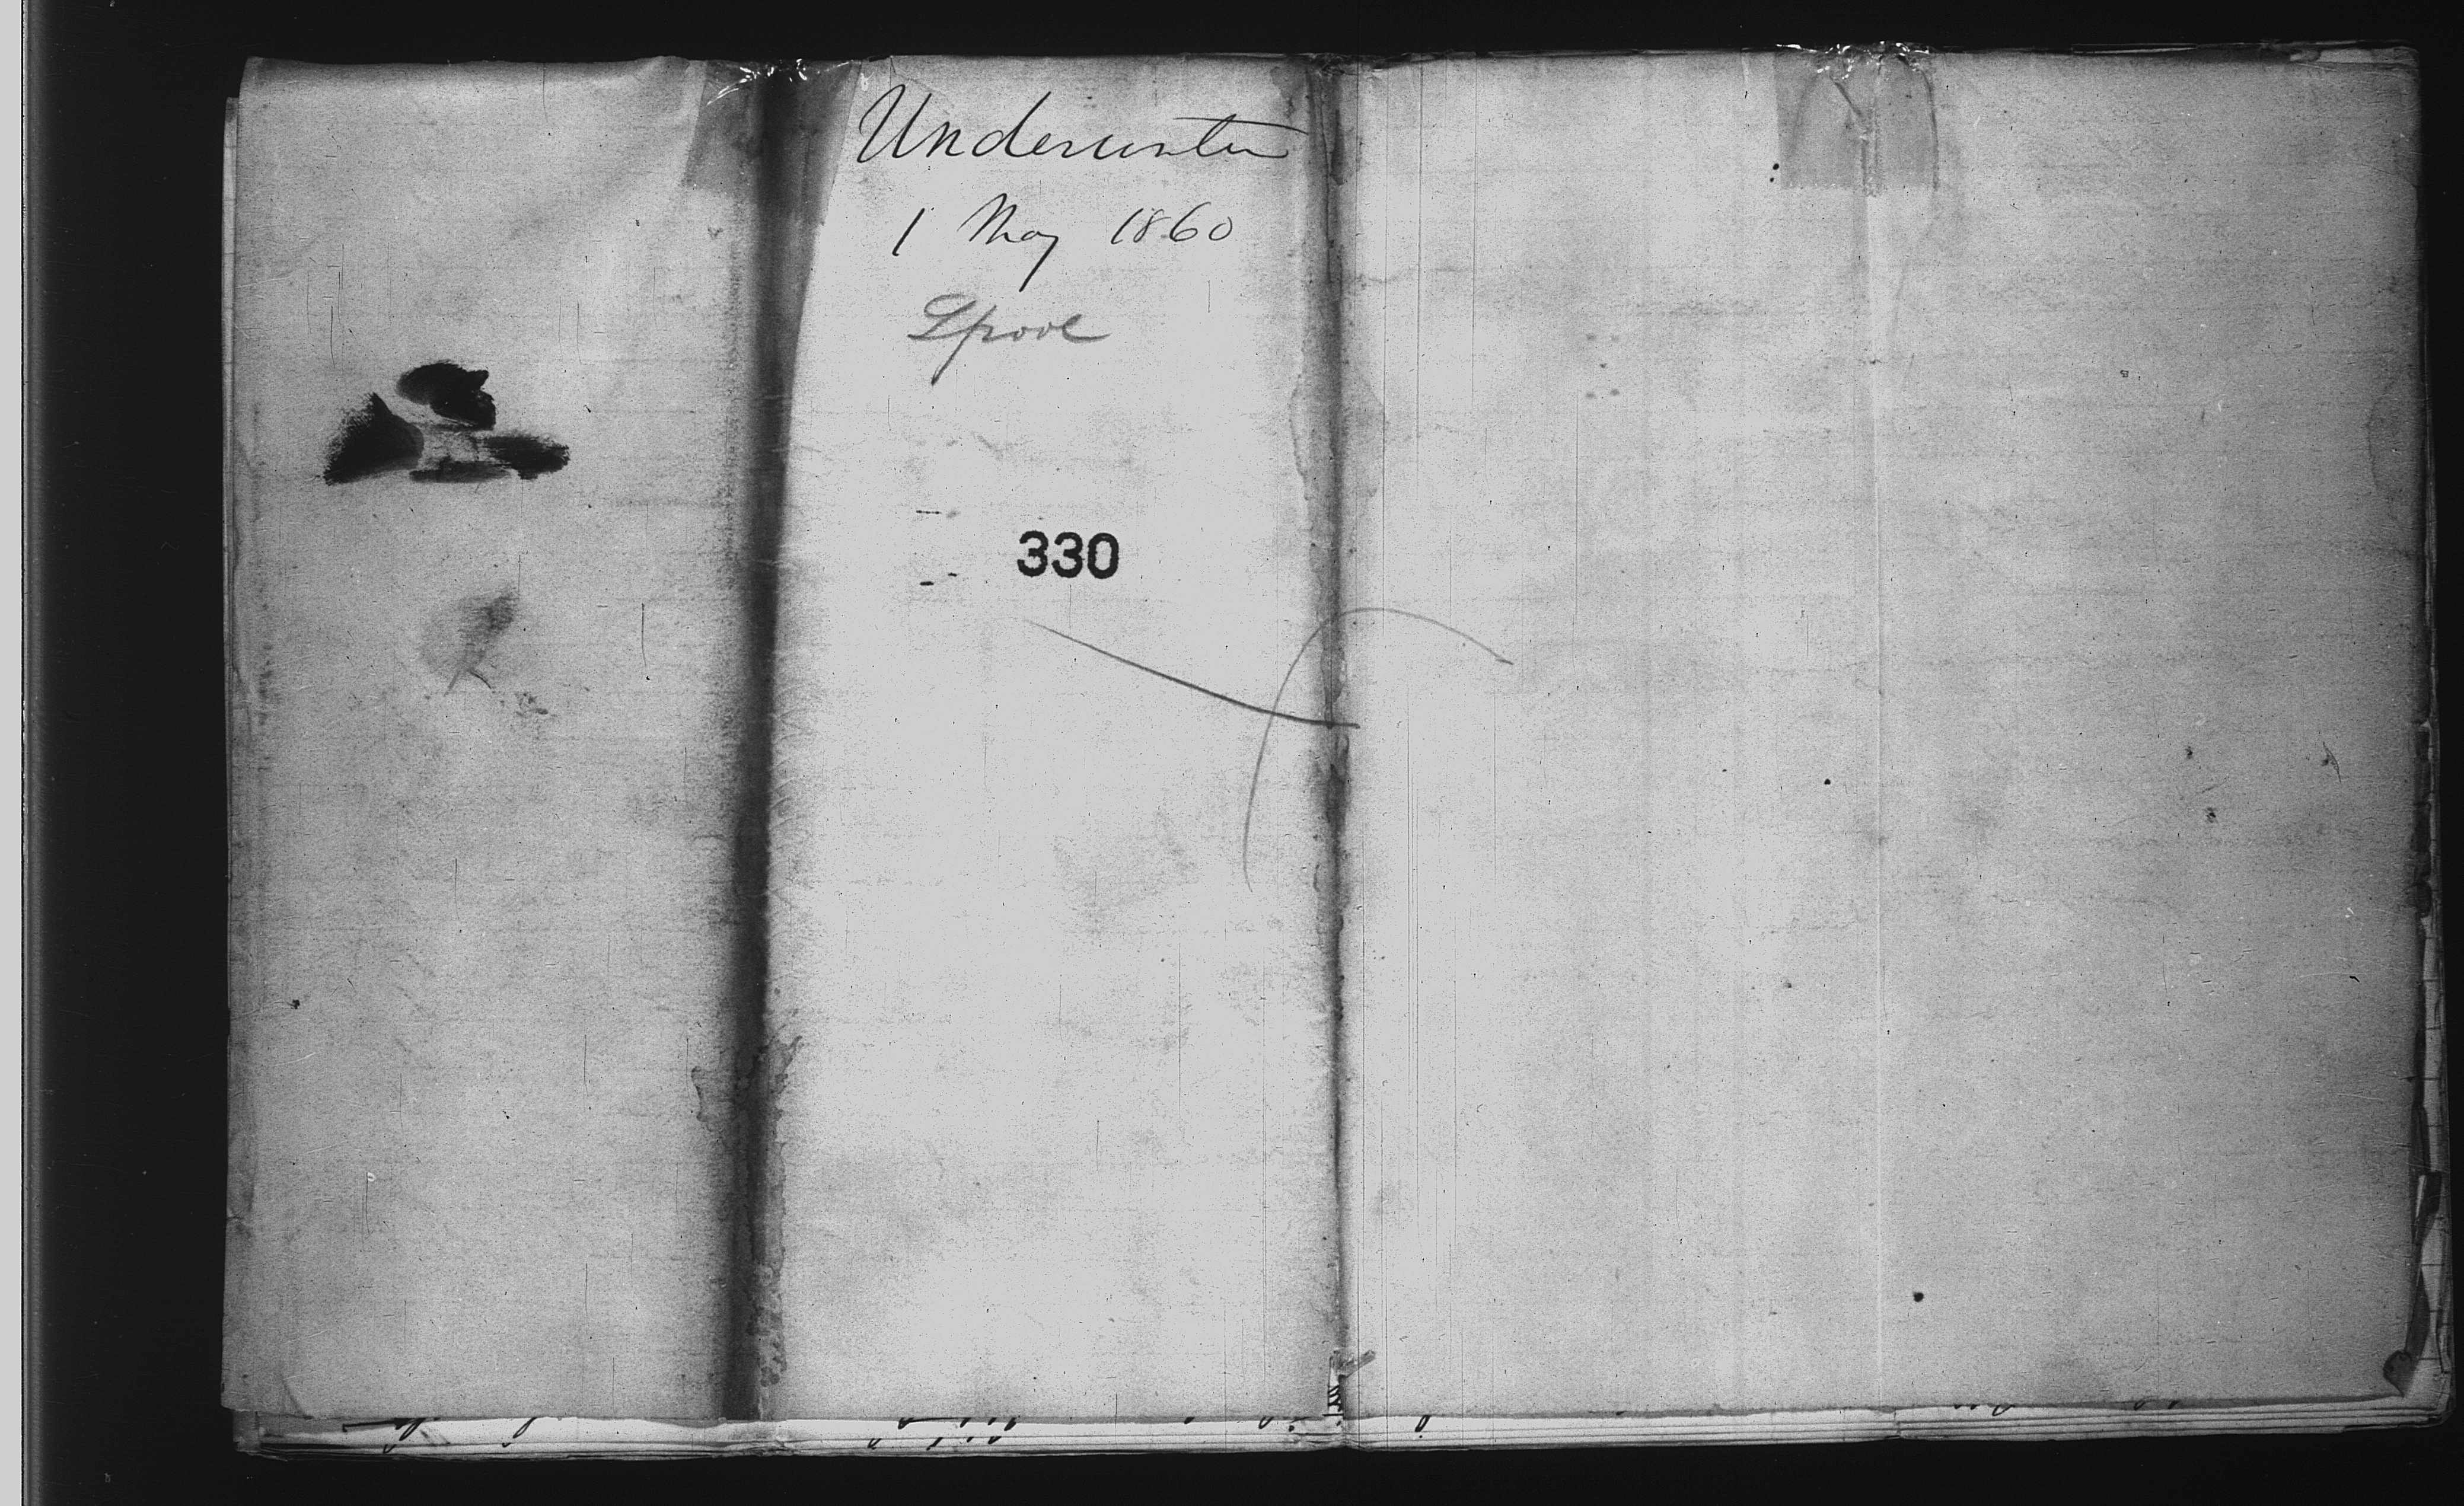 Underwriter
1 May 1860
Lpool
330